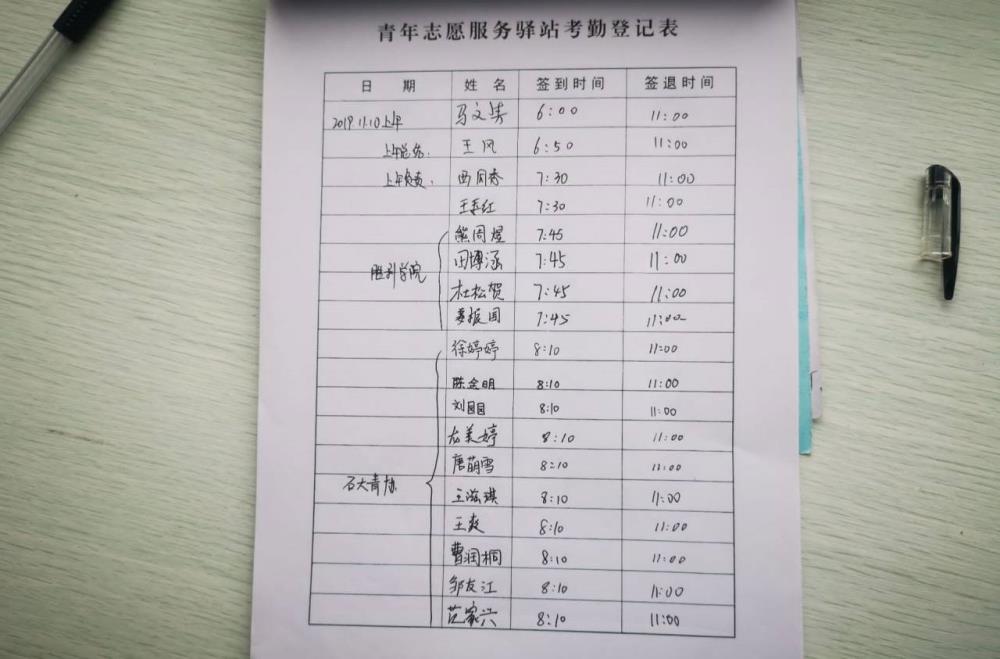 青年志愿服务驿站考勤登记表
日 期 姓 名 签到时间 签退时间
2019.11.10上午 马文 6:00 11:00
上午总负. 王风 6:50 11:00
上午负责. 西同春 7:30 11:00
王 红 7:30 11:00
熊周煜 7:45 11:00
胜利学院 田博涵 7:45 11:00
杜松贺 7:45 11:00
李振国 7:45 11:00
徐婷婷 8:10 11:00
陈金明 8:10 11:00
刘园园 8:10 11:00
龙美婷 8:10 11:00
唐萌雪 8:10 11:00
石大青协 王滋琪 8:10 11:00
王爽 8:10 11:00
曹润桐 8:10 11:00
邹友江 8:10 11:00
范家兴 8:10 11:00